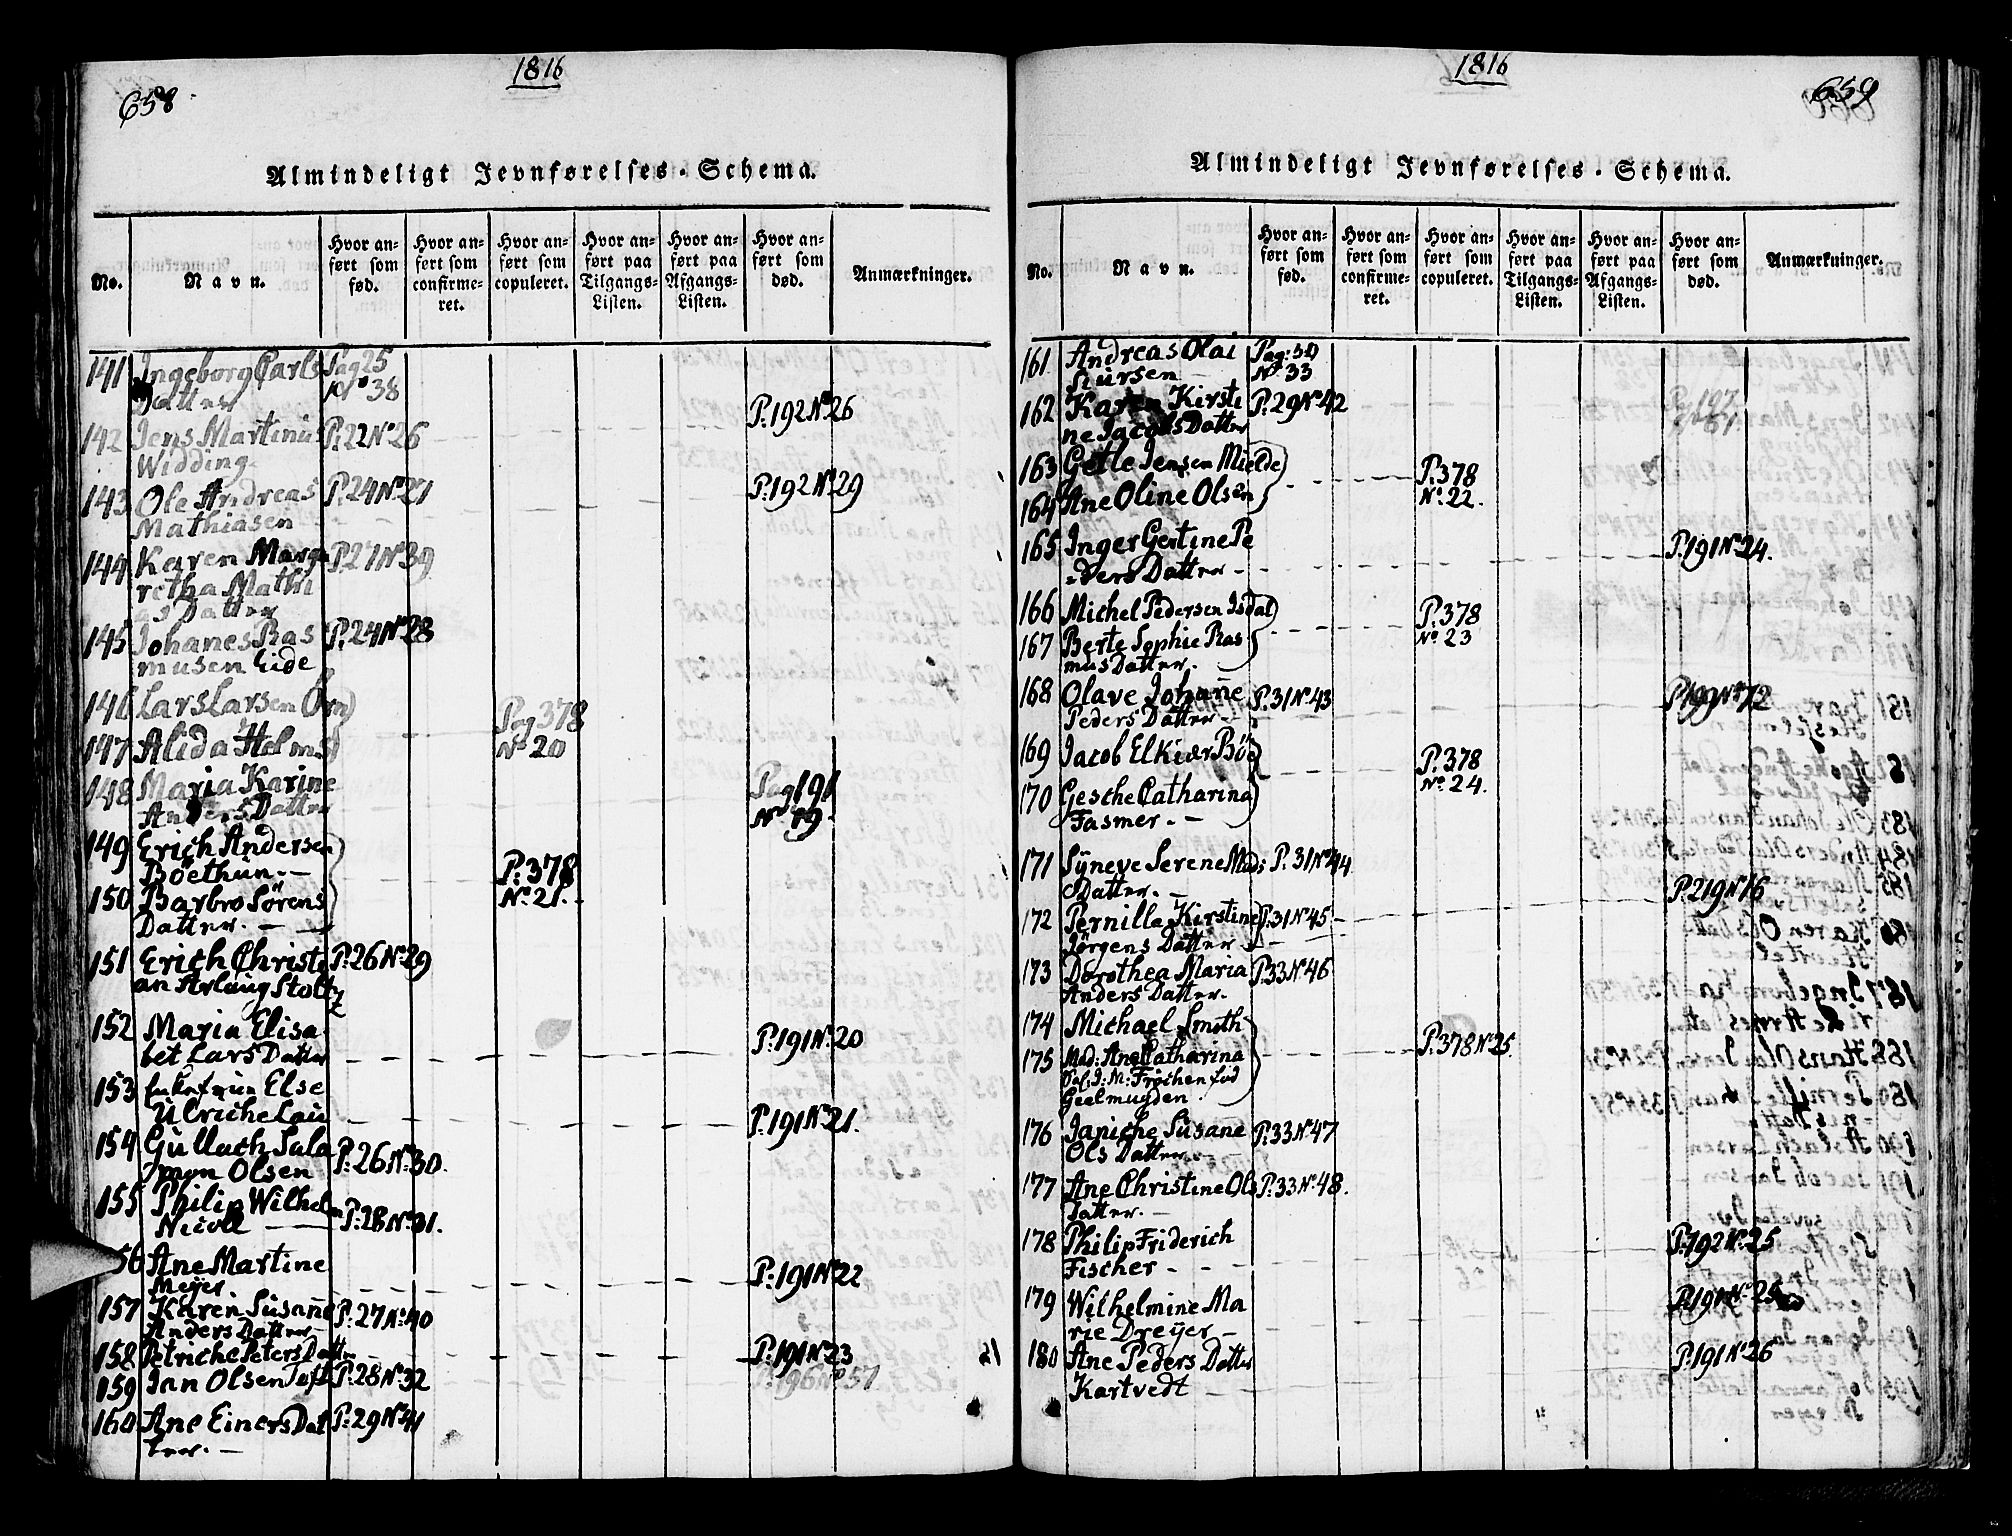 658
1816
Almindeligt Jevnførelses-Schema.
No.
Navn.
Hvor anført som fød.
Hvor anført som confirmeret.
Hvor anført som copuleret.
Hvor anført paa Tilgangs-Listen.
Hvor anført paa Afgangs-Listen.
Hvor anført som død.
Anmærkninger.
141 Ingeborg Carls Pag 25
Datter No 38
P. 192 No. 26
142 Jens Martinus P. 22 No 26
Widding
143 Ole Andreas P. 24 No 27 P. 192 No. 29
Mathiasen
144 Karen Marga P. 27 No 39
retha Mathi
as Datter
145 Johanes Ras P. 24 No 28
musen Eide
146 Lars Larsen Ørn Pag 378
147 Alida Helms No 20
148 Maria Karine Pag 191
Anders Datter No 19.
149 Erich Andersen
Böethun. P. 378
150 Barbro Sörens No. 21.
Datter.
151 Erich Christi P. 26 No. 29
an Arlaug Stoltz
152 Maria Elisa P. 191 No. 20
bet Lars Datter
153 Else
Ulriche Lau P. 191 No. 21.
154 Gullach Sala P. 26 No. 30.
mon Olsen
155 Philip Wilhelm
Nicoll P. 28 No. 31.
156 Ane Martine
Meÿer P. 191 No. 22
157 Karen Susane P. 27 No. 40
Anders Datter
158 Petriche Peters Datter P. 191 No. 23
159 Jan Olsen Toft P. 28 No. 32 P. 196 No 57
160 Ane Einers Dat P. 29 No. 41
ter.
659
1816
Almindeligt Jevnførelses-Schema.
No.
Navn.
Hvor anført som fød.
Hvor anført som confirmeret.
Hvor anført som copuleret.
Hvor anført paa Tilgangs-Listen.
Hvor anført paa Afgangs-Listen.
Hvor anført som død.
Anmærkninger.
161 Andreas Olai Pag: 30
Siursen No. 33
162 Karen Kirsti P. 29 No. 42 P. 197
ne Jacobs Datter
163 Getle Jensen Mielde P. 378
164 Ane Oline Olsen No. 22.
165 Inger Gertine Pe P. 191 No. 24.
ders Datter
166 Michel Pedersen Isdal P. 378
167 Berte Sophie Ras No 23
mus Datter.
168 Olave Johane P. 31 No. 43 P. 199 No. 72
Peders Datter
169 Jacob Elkiær Böe P. 378
170 Gesche Catharina No. 24.
Fasmer.
171 Sÿneve Serene Mads P. 31 No. 44
Datter. P. 219 No. 16
172 Pernilla Kirstine P. 31 No. 45
Jörgens Datter
173 Dorothea Maria P. 33 No. 46
Anders Datter.
174 Michael Smith
175 Mad: Ane Catharina P. 378 No. 25
Sal: J: M: Fröchen föd
Geelmuyden
176 Janiche Susane P. 33 No. 47
Ols Datter
177 Ane Christine Ols P. 33 No. 48.
Datter.
178 Philip Friderich P. 192 No. 25
Fischer
179 Wilhelmine Ma P. 191 No. 25
rie Dreÿer
180 Ane Peders Datter P. 191 No 26
Kartvedt